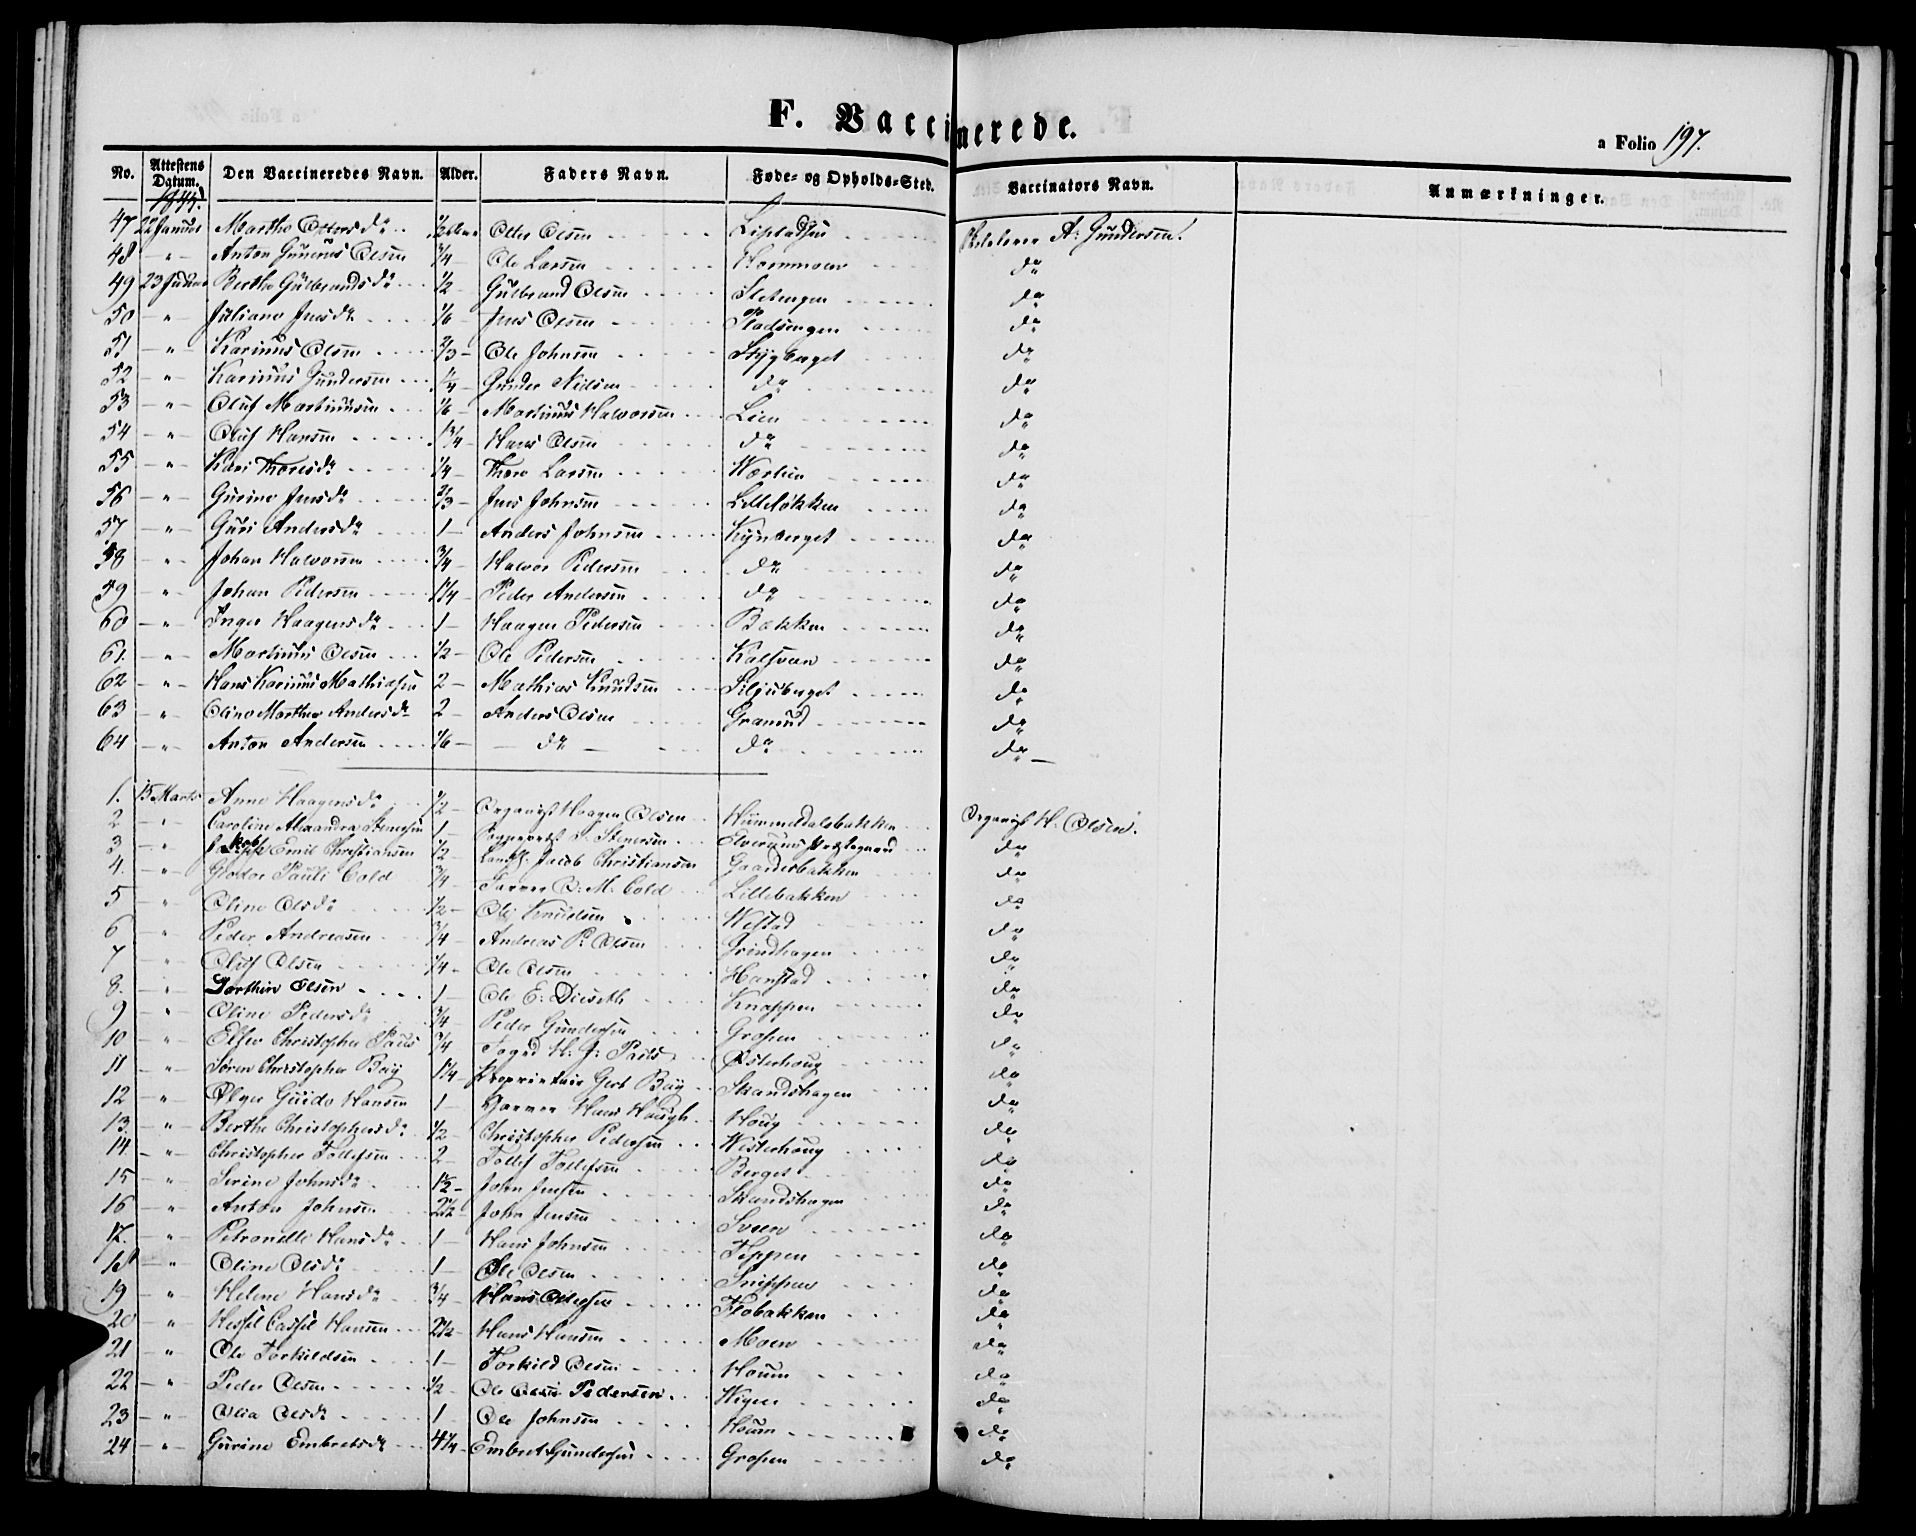 F. Vaccinerede.
a Folio 197.
No. Attestens Datum. Den Vaccineredes Navn. Alder. Faders Navn. Føde- og Opholds-Sted. Vaccinators Navn. Anmærkninger.
47 22 Marthe Ottersdr 1/2 Otter Olsen A: Gundersen.
48 " Anton Gunerus Olsen 3/4 Ole Larsen Hommoen do
49 23 Berthe Gulbrandsdr 1/2 Gulbrand Olsen do
50 " Juliane Jensdr 1/6 Jens Olsen Pladsengen do
51 " Karinus Olsen 2/3 Ole Johnsen Stygberget do
52 " Karinus Gundersen 1/4 Gunder Nilsen do do
53 " Oluf Martinusen 1/6 Martinus Halvorsen Lien do
54 " Oluf Hansen 1 3/4 Hans Olsen do do
55 " Kari Thoresdr 1/4 Thore Larsen do
56 " Gurine Jensdr 2/3 Jens Johnsen Lilleløkken do
57 " Guri Andersdr 1 Anders Johnsen Kynberget do
58 " Johan Halvorsen 3/4 Halvor Pedersen do do
59 " Johan Pedersen 1 1/4 Peder Andersen do do
60 " Inger Haagensdr 1 Haagen Pedersen Bakken do
61. " Martinus Olsen 1/2 Ole Pedersen do
62 " Hans Karinus Mathiasen 2 Mathias Knudsen Siljuberget do
63 " Oline Marthea Andersdr 2 Anders Olsen Gramund do
64 " Anton Andersen 1/6 do do do
1. 15 Marts Anne Haagensdr 1/2 Organist Haagen Olsen Hummeldalsbakken Organist H. Olsen.
2 " Caroline Alexandra Stenersen 1 S. Stenersen Elverums Præstegaard do
3 " Emil Christiansen 1/2 Jacob Christiansen Gaarderbakken do
4. " Pauli Cold 3/4 O. M. Cold Lillebakken do
5 " Oline Olsdr 1/2 Ole Knudsen Westad do
6 " Peder Andreasen 3/4 Andreas P. Olsen Grindhagen do
7 " Oluf Olsen 1/4 Ole Olsen Hanstad do
8. " Olsen 1 Ole E: Diseth Knappen do
9 " Oline Pedersdr 3/4 Peder Gundersen Grosen do
10 " Christopher Paus 3/4 Foged H: J: Paus Østerhoug do
11 " Søren Christopher Bay 1 1/4 Proprietair Gert Bay Strandshagen do
12 " Guido Hansen 1 Hans Haugh Houg do
13 " Berthe Christophersdr 1/2 Christopher Pedersen Westerhoug do
14. " Christopher Tollefsen 2 Tollef Tollefsen Berget do
15 " Serine Johnsdr 1 1/2 John Jensen Strandshagen do
16 " Anton Johnsen 2 1/2 John Jensen Sveen do
17. " Petronelle Hansdr 1 Hans Johnsen Teppen do
18 " Oline Olsdr 1 Ole Olsen Snippen do
19 " Helene Hansdr 3/4 Hans Flobakken do
20 " Hansen 2 1/2 Hans Hansen Moen do
21 " Ole Torkildsen 1 Torkild Olsen Houm do
22 " Peder Olsen 1/2 Ole Pedersen do
23 " Olia Olsdr 1 Ole Johnsen Houm do
24 " Gurine Embretsdr 4 1/4 Embret Gundersen Grosen do